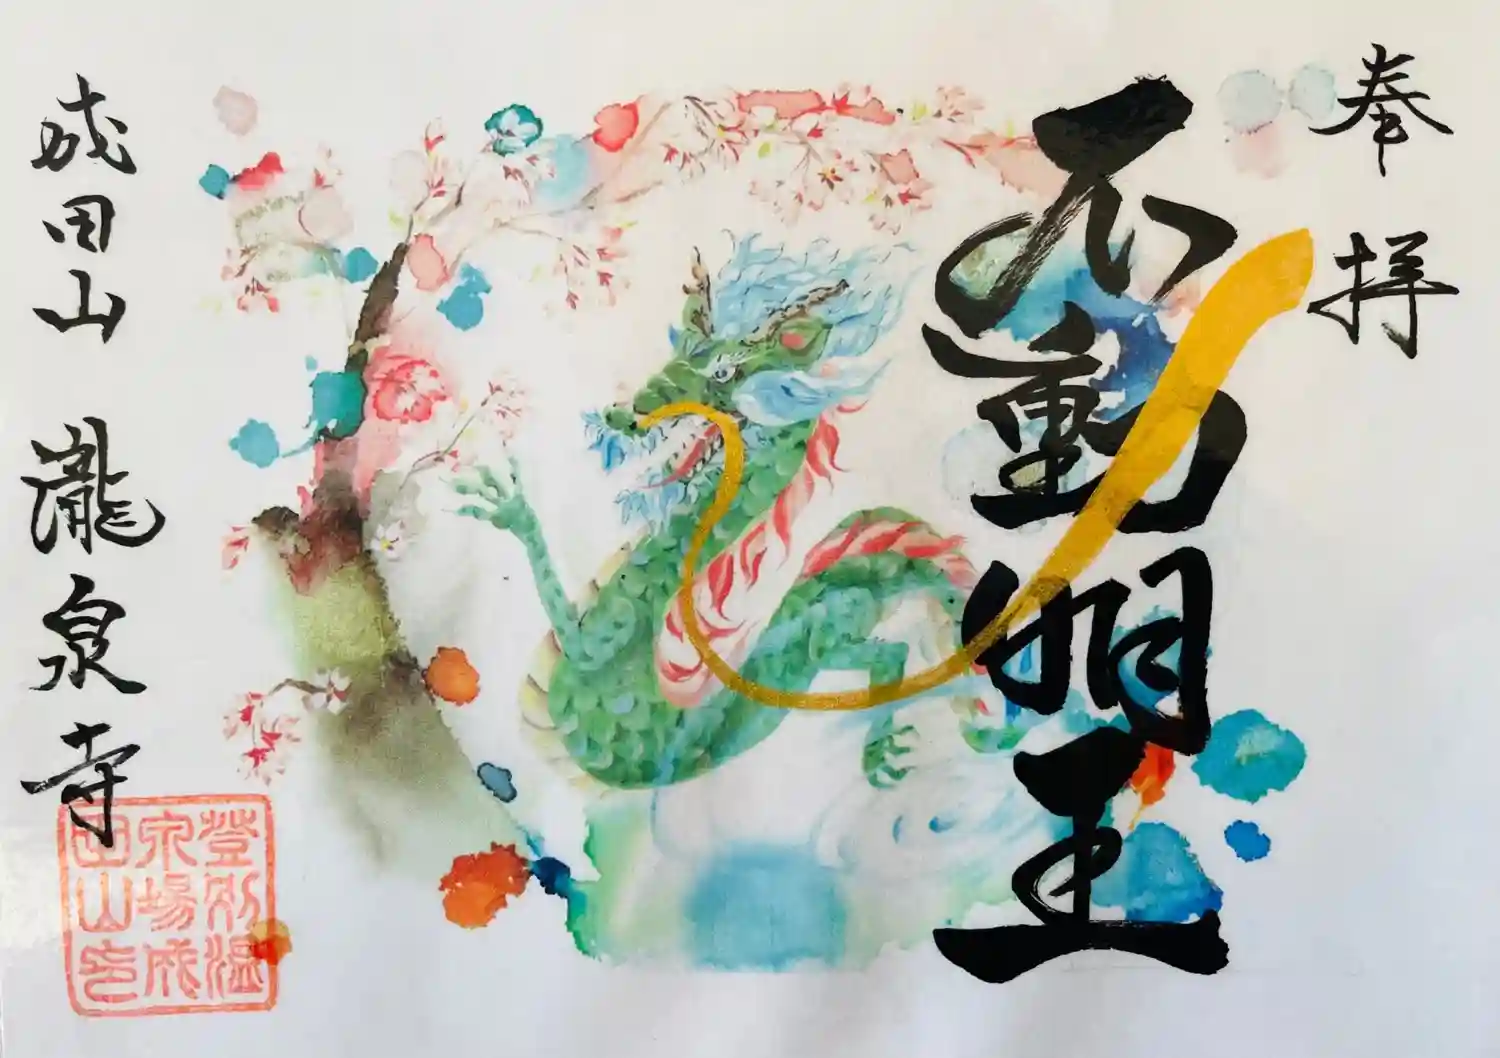 奉拝
不動明王
成田山 瀧泉寺
登別温
泉場成
田山印